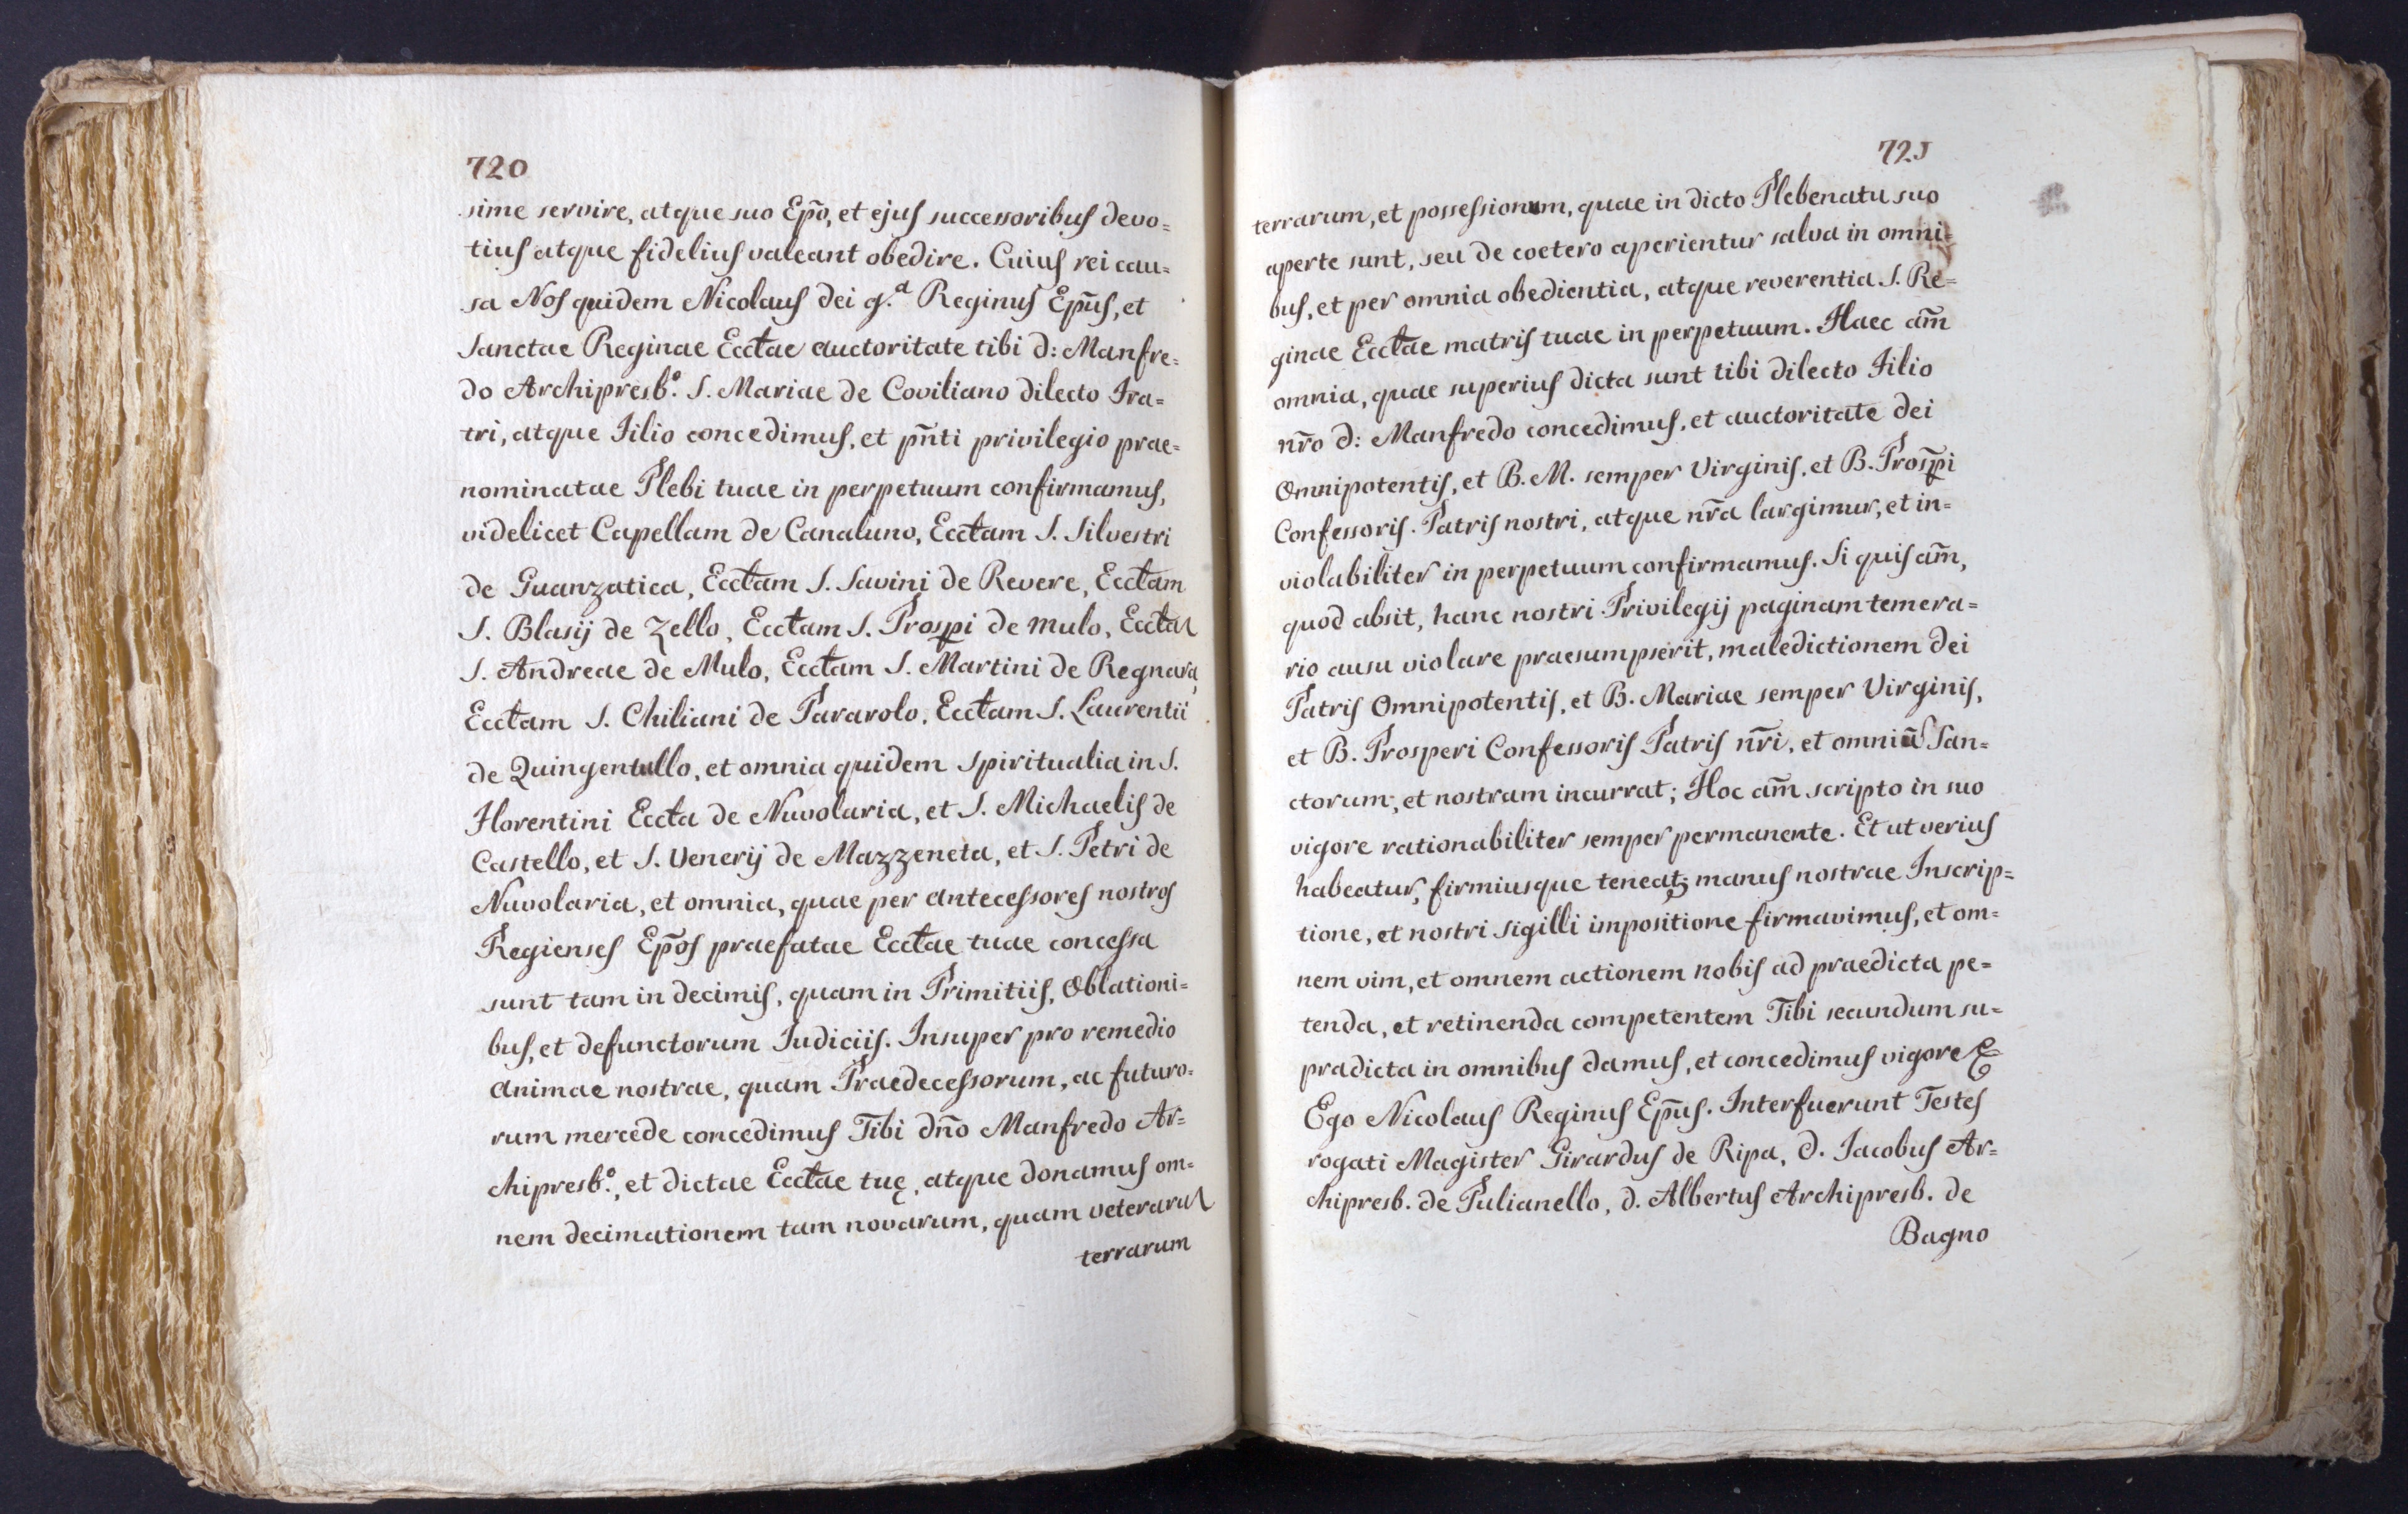 720
sime servire, atque suo Ep̄o, et ejus successoribus devo=
tius atque fidelius valeant obedire. Cuius rei cau=
sa Nos quidem Nicolaus dei g.ª Reginus Ep̄us, et
Sanctae Reginae Ecctae auctoritate tibi d: Manfre=
do Archipresb.º S. Mariae de Coviliano dilecto Fra=
tri, atque Filio concedimus, et pn̄ti privilegio prae=
nominatae Plebi tuae in perpetuum confirmamus,
videlicet Capellam de Canaluno, Ecctam S. Silvestri
de Guanzatica, Ecctam S. Savini de Revere, Ecctam
S. Blasij de Zello, Ecctam S. Prosp̄i de Mulo, Ecctam
S. Andreae de Mulo, Ecctam S. Martini de Regnara,
Ecctam S. Chiliani de Pararolo, Ecctam S. Laurentii
de Quingentullo, et omnia quidem spiritualia in S.
Florentini Eccta de Nuvolaria, et S. Michaelis de
Castello, et S. Venerij de Mazzeneta, et S. Petri de
Nuvolaria, et omnia, quae per antecessores nostros
Regienses Ep̄os praefatae Ecctae tuae concessa
sunt tam in decimis, quam in Primitiis, Oblationi=
bus, et defunctorum Judiciis. Insuper pro remedio
animae nostrae, quam Praedecessorum, ac futuro=
rum mercede concedimus Tibi dn̄o Manfredo Ar=
chipresb.º, et dictae Ecctae tuę, atque donamus om=
nem decimationem tam novarum, quam veterarum
terrarum
721
terrarum, et possessionum, quae in dicto Plebenatu suo
aperte sunt, seu de coetero aperientur salva in omni=
bus, et per omnia obedientia, atque reverentia S. Re=
ginae Ecctae matris tuae in perpetuum. Haec am̄
omnia, quae superius dicta sunt tibi dilecto Filio
nr̄o d: Manfredo concedimus, et auctoritate dei
Omnipotentis, et B. M. semper Virginis, et B. Prosp̄i
Confessoris. Patris nostri, atque nr̄a largimur, et in=
violabiliter in perpetuum confirmamus. Si quis am̄,
quod absit, hanc nostri Privilegij paginam temera=
rio ausu violare praesumpserit, maledictionem dei
Patris Omnipotentis, et B. Mariae semper Virginis,
et B. Prosperi Confessoris Patris nr̄i, et omniū San=
ctorum, et nostram incurrat; Hoc am̄ scripto in suo
vigore rationabiliter semper permanente. Et ut verius
habeatur, firmiusque teneat; manus nostrae Inscrip=
tione, et nostri sigilli impositione firmavimus, et om=
nem vim, et omnem actionem nobis ad praedicta pe=
tenda, et retinenda competentem Tibi secundum su=
pradicta in omnibus damus, et concedimus vigore &
Ego Nicolaus Reginus Ep̄us. Interfuerunt Testes
rogati Magister Girardus de Ripa, d. Jacobus Ar=
chipresb. de Pulianello, d. Albertus Archipresb. de
Bagno